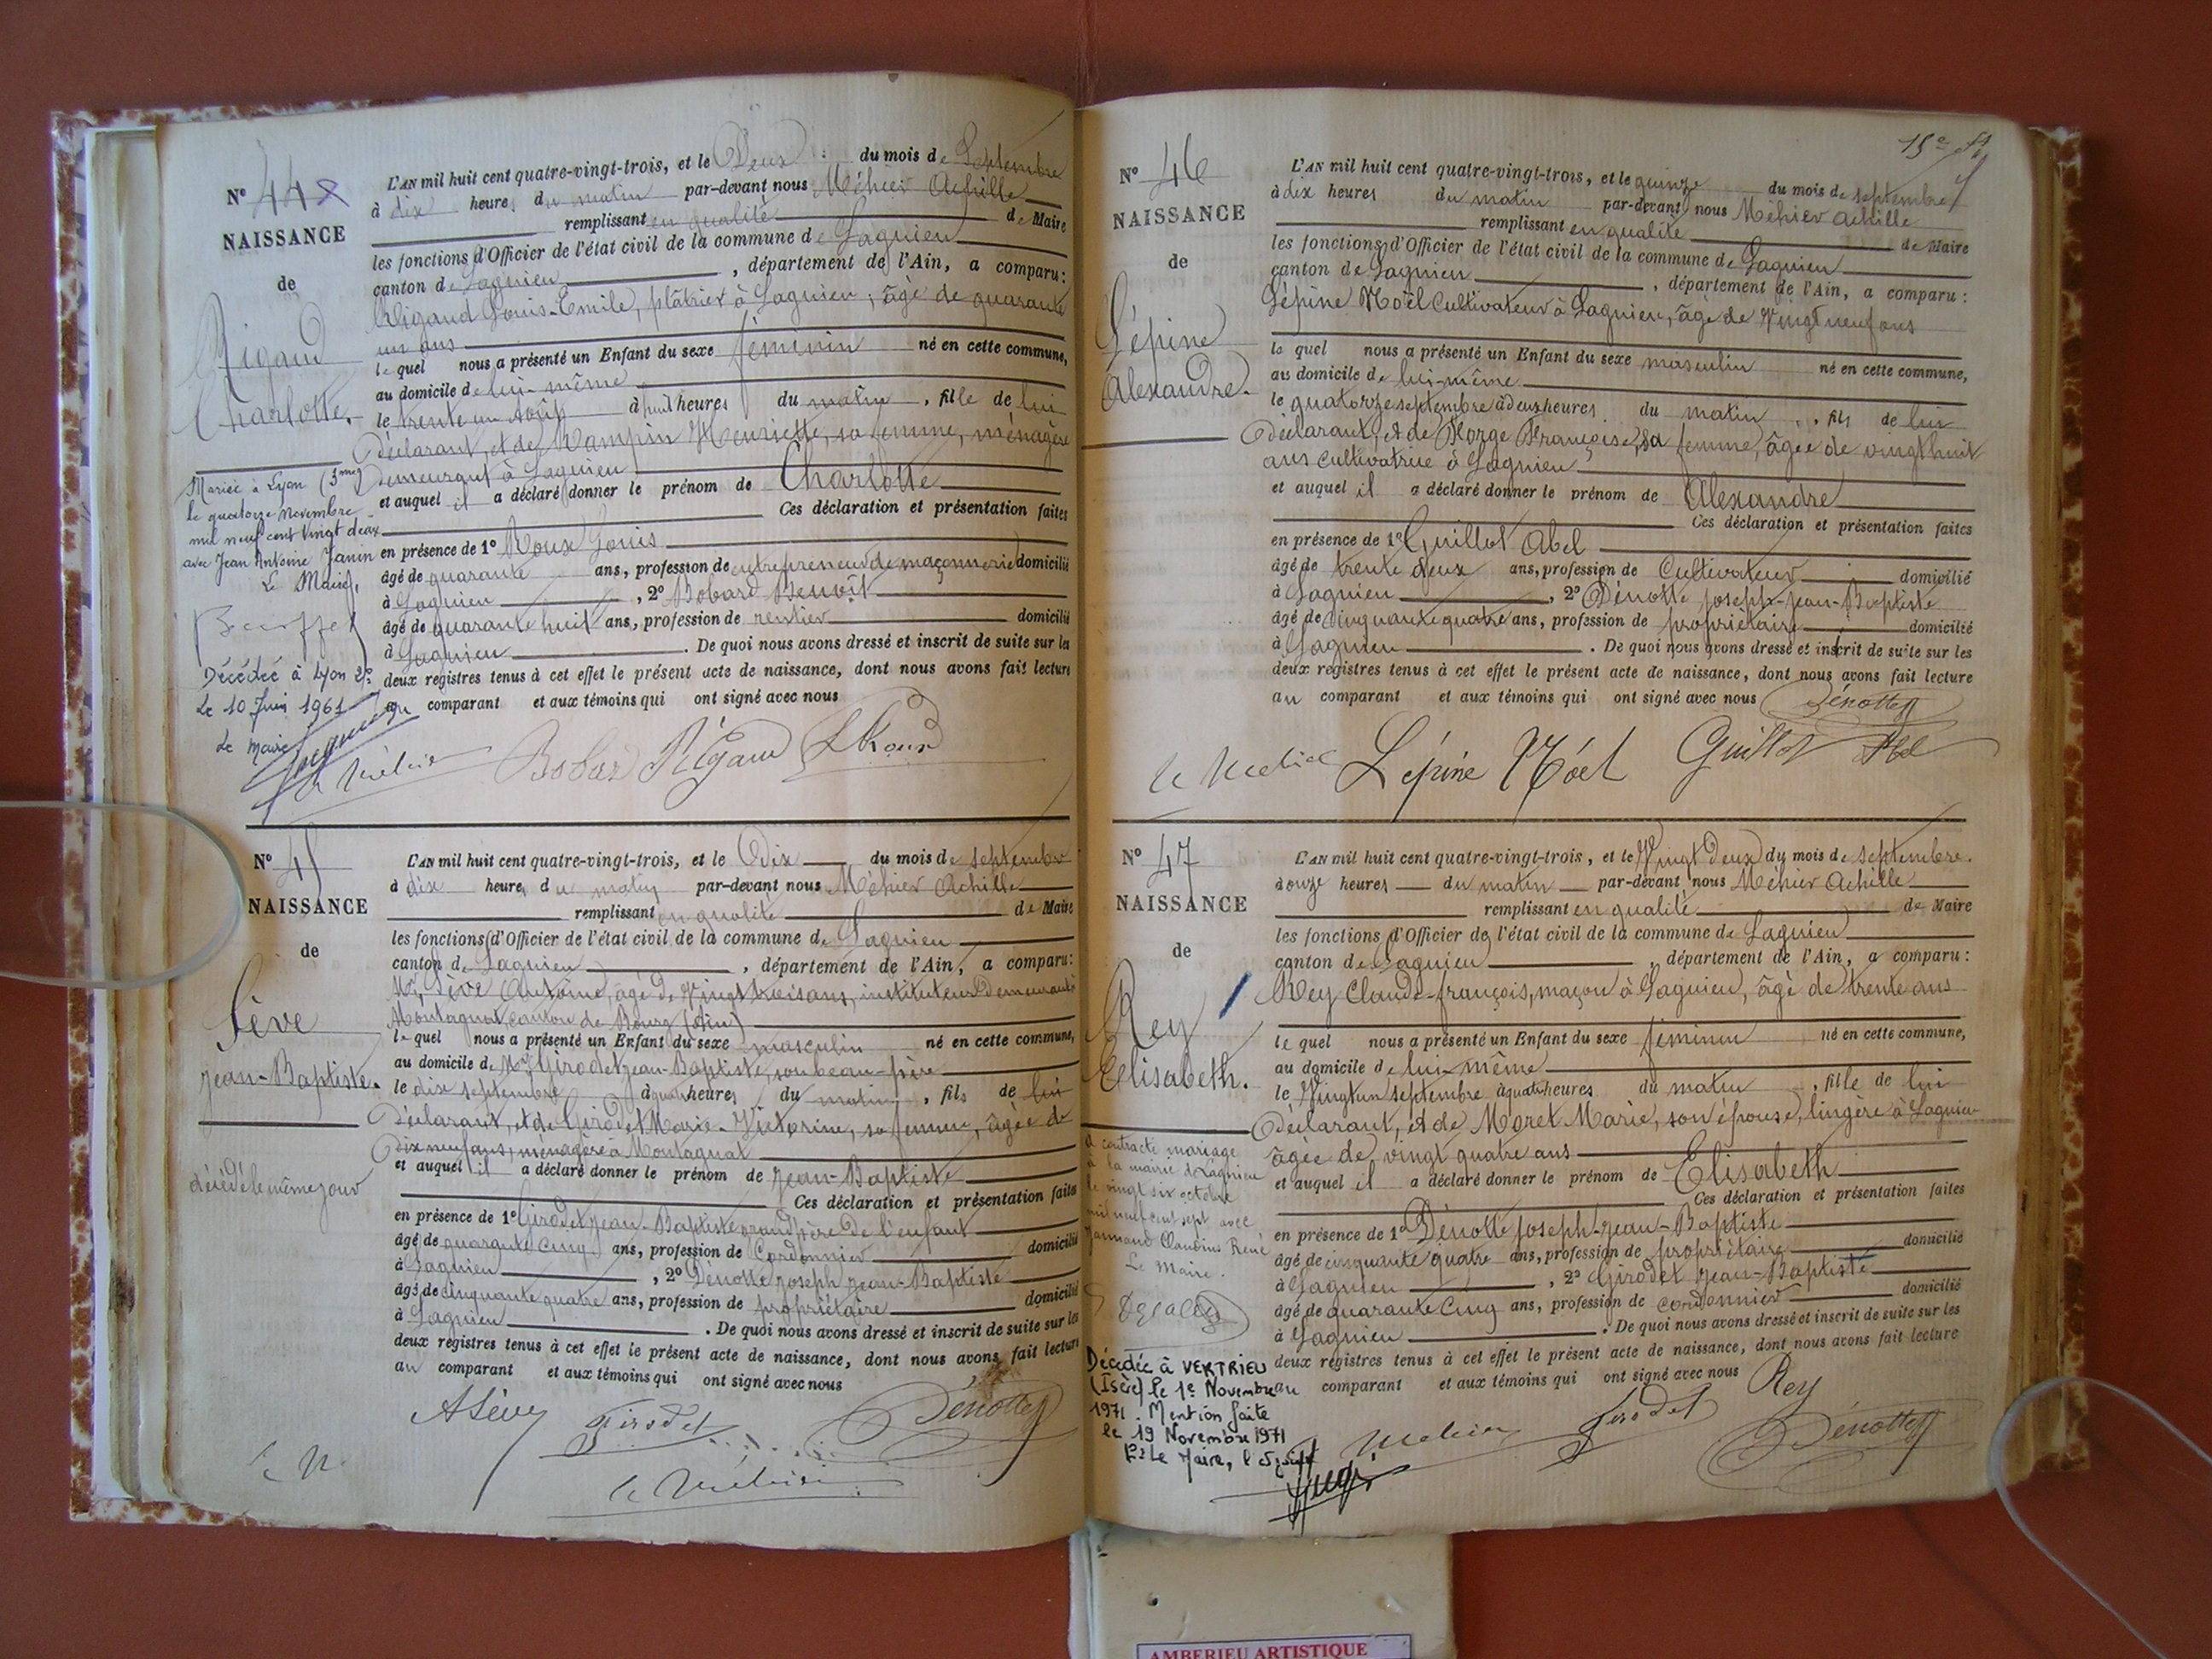 N° 44
NAISSANCE
de
Rigaud
Charlotte.
L'AN mil huit cent quatre-vingt-trois, et le Deux du mois de Septembre
à dix heures du matin par-devant nous Méhier Achille
remplissant en qualité de Maire
les fonctions d'Officier de l'état civil de la commune de Lagnieu
canton de Lagnieu, département de l'Ain, a comparu:
Rigaud Louis-Emile, plâtrier à Lagnieu, âgé de quarante
un ans
lequel nous a présenté un Enfant du sexe féminin né en cette commune,
au domicile de lui-même
le trente un août à huit heures du matin, fille de lui
déclarant, et de Henriette, sa femme, ménagère
demeurant à Lagnieu
et auquel il a déclaré donner le prénom de Charlotte
Ces déclaration et présentation faites
en présence de 1° Roux Louis
âgé de quarante ans, profession de entrepreneur de maçonnerie domicilié
à Lagnieu, 2° Bobard Benoît
âgé de quarante huit ans, profession de rentier domicilié
à Lagnieu. De quoi nous avons dressé et inscrit de suite sur les
deux registres tenus à cet effet le présent acte de naissance, dont nous avons fait lecture
au comparant et aux témoins qui ont signé avec nous
Mariée à Lyon (3me)
le quatorze Novembre
mil neuf cent vingt deux
avec Jean Antoine Janin
Le Maire,
Décédée à Lyon 2e
Le 10 Juin 1961
Le Maire
Bobard Rigaud L Roux
N° 45
NAISSANCE
de
Sève
Jean-Baptiste.
décédé le même jour
L'AN mil huit cent quatre-vingt-trois, et le Dix du mois de septembre
à dix heures du matin par-devant nous Méhier Achille
remplissant en qualité de Maire
les fonctions d'Officier de l'état civil de la commune de Lagnieu
canton de Lagnieu, département de l'Ain, a comparu:
Mr Sève Antoine, âgé de Vingt trois ans, instituteur demeurant à
Montagnat, canton de Bourg (Ain)
lequel nous a présenté un Enfant du sexe masculin né en cette commune,
au domicile de Mr Girodet Jean-Baptiste, son beau-père
le dix septembre à quatre heures du matin, fils de lui
déclarant, et de Girodet Marie-Victorine, sa femme, âgée de
Dix neuf ans, ménagère à Montagnat
et auquel il a déclaré donner le prénom de Jean-Baptiste
Ces déclaration et présentation faites
en présence de 1° Girodet Jean-Baptiste grand père de l'enfant
âgé de quarante cinq ans, profession de Cordonnier domicilié
à Lagnieu, 2° Dénotte Joseph Jean-Baptiste
âgé de cinquante quatre ans, profession de propriétaire domicilié
à Lagnieu. De quoi nous avons dressé et inscrit de suite sur les
deux registres tenus à cet effet le présent acte de naissance, dont nous avons fait lecture
au comparant et aux témoins qui ont signé avec nous
A Sève Girodet Dénotte
15e
N° 46
NAISSANCE
de
Lépine
Alexandre.
L'AN mil huit cent quatre-vingt-trois, et le quinze du mois de septembre
à dix heures du matin par-devant nous Méhier Achille
remplissant en qualité de Maire
les fonctions d'Officier de l'état civil de la commune de Lagnieu
canton de Lagnieu, département de l'Ain, a comparu:
Lépine Noël Cultivateur à Lagnieu, âgé de Vingt neuf ans
lequel nous a présenté un Enfant du sexe masculin né en cette commune,
au domicile de lui-même
le quatorze septembre à deux heures du matin, fils de lui
déclarant, et de Françoise, sa femme, âgée de vingt huit
ans cultivatrice à Lagnieu
et auquel il a déclaré donner le prénom de Alexandre
Ces déclaration et présentation faites
en présence de 1° Guillot Abel
âgé de trente deux ans, profession de Cultivateur domicilié
à Lagnieu, 2° Dénotte Joseph-Jean-Baptiste
âgé de Cinquante quatre ans, profession de propriétaire domicilié
à Lagnieu. De quoi nous avons dressé et inscrit de suite sur les
deux registres tenus à cet effet le présent acte de naissance, dont nous avons fait lecture
au comparant et aux témoins qui ont signé avec nous Dénotte
Lépine Noël Guillot Abel
N° 47
NAISSANCE
de
Rey
Elisabeth.
L'AN mil huit cent quatre-vingt-trois, et le Vingt Deux du mois de septembre.
à onze heures du matin par-devant nous Méhier Achille
remplissant en qualité de Maire
les fonctions d'Officier de l'état civil de la commune de Lagnieu
canton de Lagnieu, département de l'Ain, a comparu:
Rey Claude-françois, maçon à Lagnieu, âgé de trente ans
lequel nous a présenté un Enfant du sexe féminin né en cette commune,
au domicile de lui-même
le Vingt un septembre à quatre heures du matin, fille de lui
déclarant, et de Moret Marie, son épouse, lingère à Lagnieu
âgée de vingt quatre ans
et auquel il a déclaré donner le prénom de Elisabeth
Ces déclaration et présentation faites
en présence de 1° Dénotte Joseph-Jean-Baptiste
âgé de cinquante quatre ans, profession de propriétaire domicilié
à Lagnieu, 2° Girodet Jean-Baptiste
âgé de quarante cinq ans, profession de cordonnier domicilié
à Lagnieu. De quoi nous avons dressé et inscrit de suite sur les
deux registres tenus à cet effet le présent acte de naissance, dont nous avons fait lecture
au comparant et aux témoins qui ont signé avec nous Rey
A contracté mariage
à la mairie de Lagnieu
le vingt six octobre
mil neuf cent sept avec
Jarmand Claudius René
Le Maire.
Décédée à VERTRIEU
(Isère) le 1er Novembre
1971. Mention faite
le 19 Novembre 1971
Pr Le Maire, l'Adjoint
Girodet Dénotte
AMBERIEU ARTISTIQUE